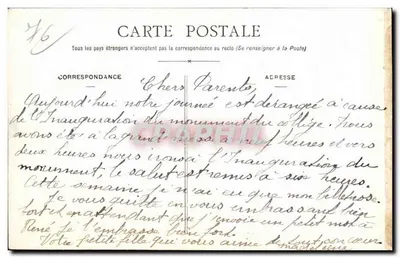 76
CARTE POSTALE
Tous les pays étrangers n'acceptent pas la correspondance au recto (Se renseigner à la Poste)
CORRESPONDANCE
ADRESSE
Chers Parents,
Aujourd'hui notre journée est dérangé à cause
de l'Inauguration du monument du collège. Nous
avons été à la grand messe à neuf heures et vers
deux heures nous irons à l'Inauguration du
monument, le salut est remis à six heures.
Cette semaine je n'ai eu que mon
Je vous quitte en vous embrassant bien
fort en attendant que j'envoie un petit mot à
René. Je l'embrasse bien fort.
Votre petite fille qui vous aime de tout son cœur
Madeleine